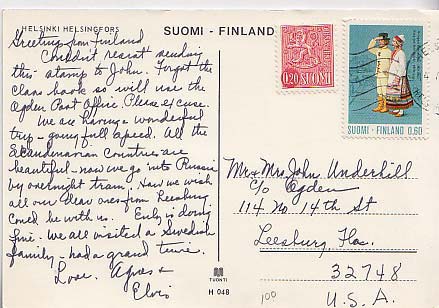 HELSINKI HELSINGFORS
SUOMI - FINLAND
Greeting from Finland
Couldn't resist sending
this stamp to John. Forgot the
class book so will use the
Ogden Post Office. Please excuse.
We are having a wonderful
trip - going full speed. All the
Scandanavian Countries are
beautiful - now we go into Russia
by overnight train. How we wish
all our dear ones from Leesburg
could be with us. is doing
fine. We all visited a Swedish
family - had a grand time.
Love, Agnes &
Elvis
0,20 SUOMI
SUOMI - FINLAND 0,60
Mr & Mrs. John Underhill
c/o Ogden
114 No. 14th St
Leesburg, Fla.
32748
U.S.A.
TUONTI
H 048
100